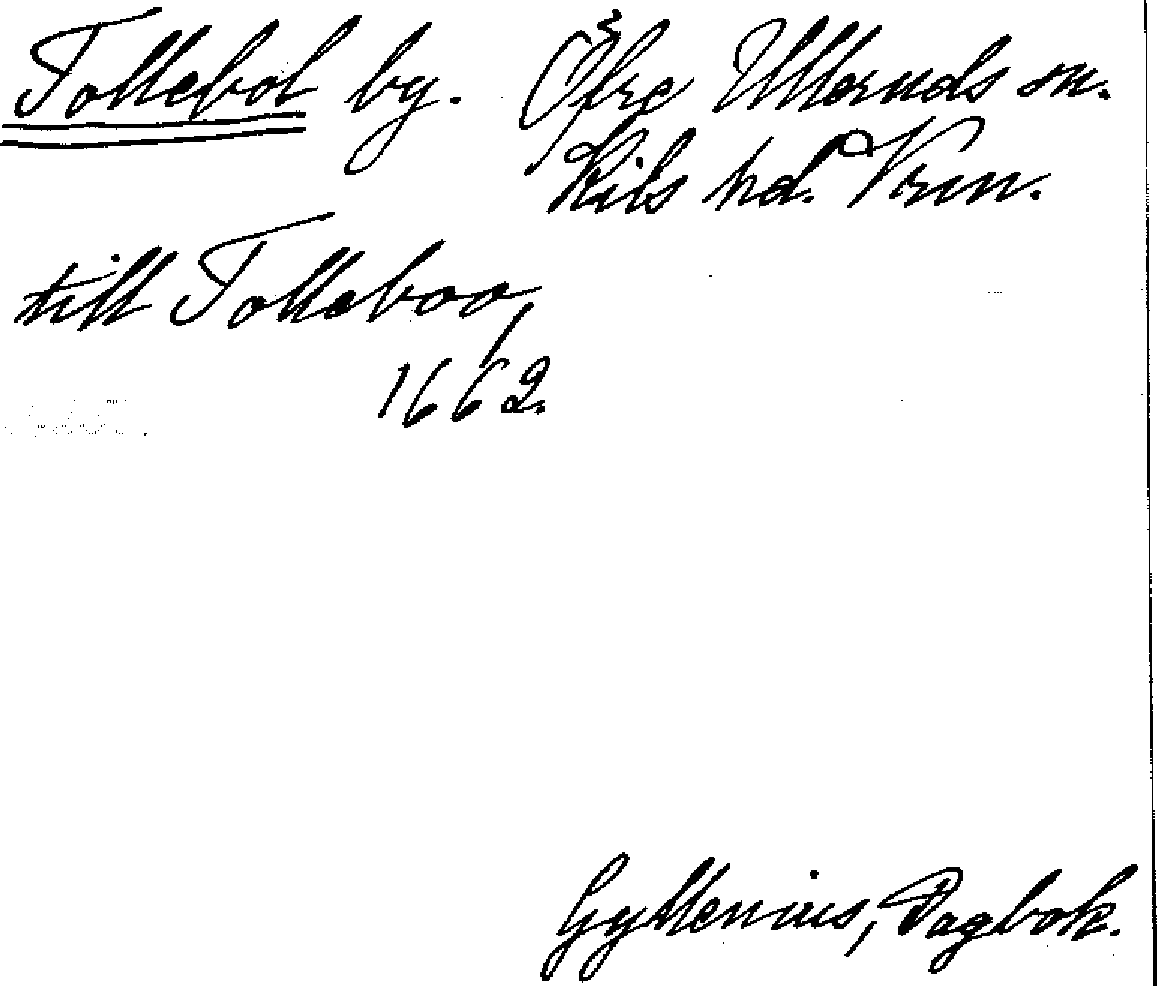 Tollebol by. Öfre Ulleruds sn.
Kils hd. Vrm.
till Tolleboo,
1662.
Gyllenius, Dagbok.